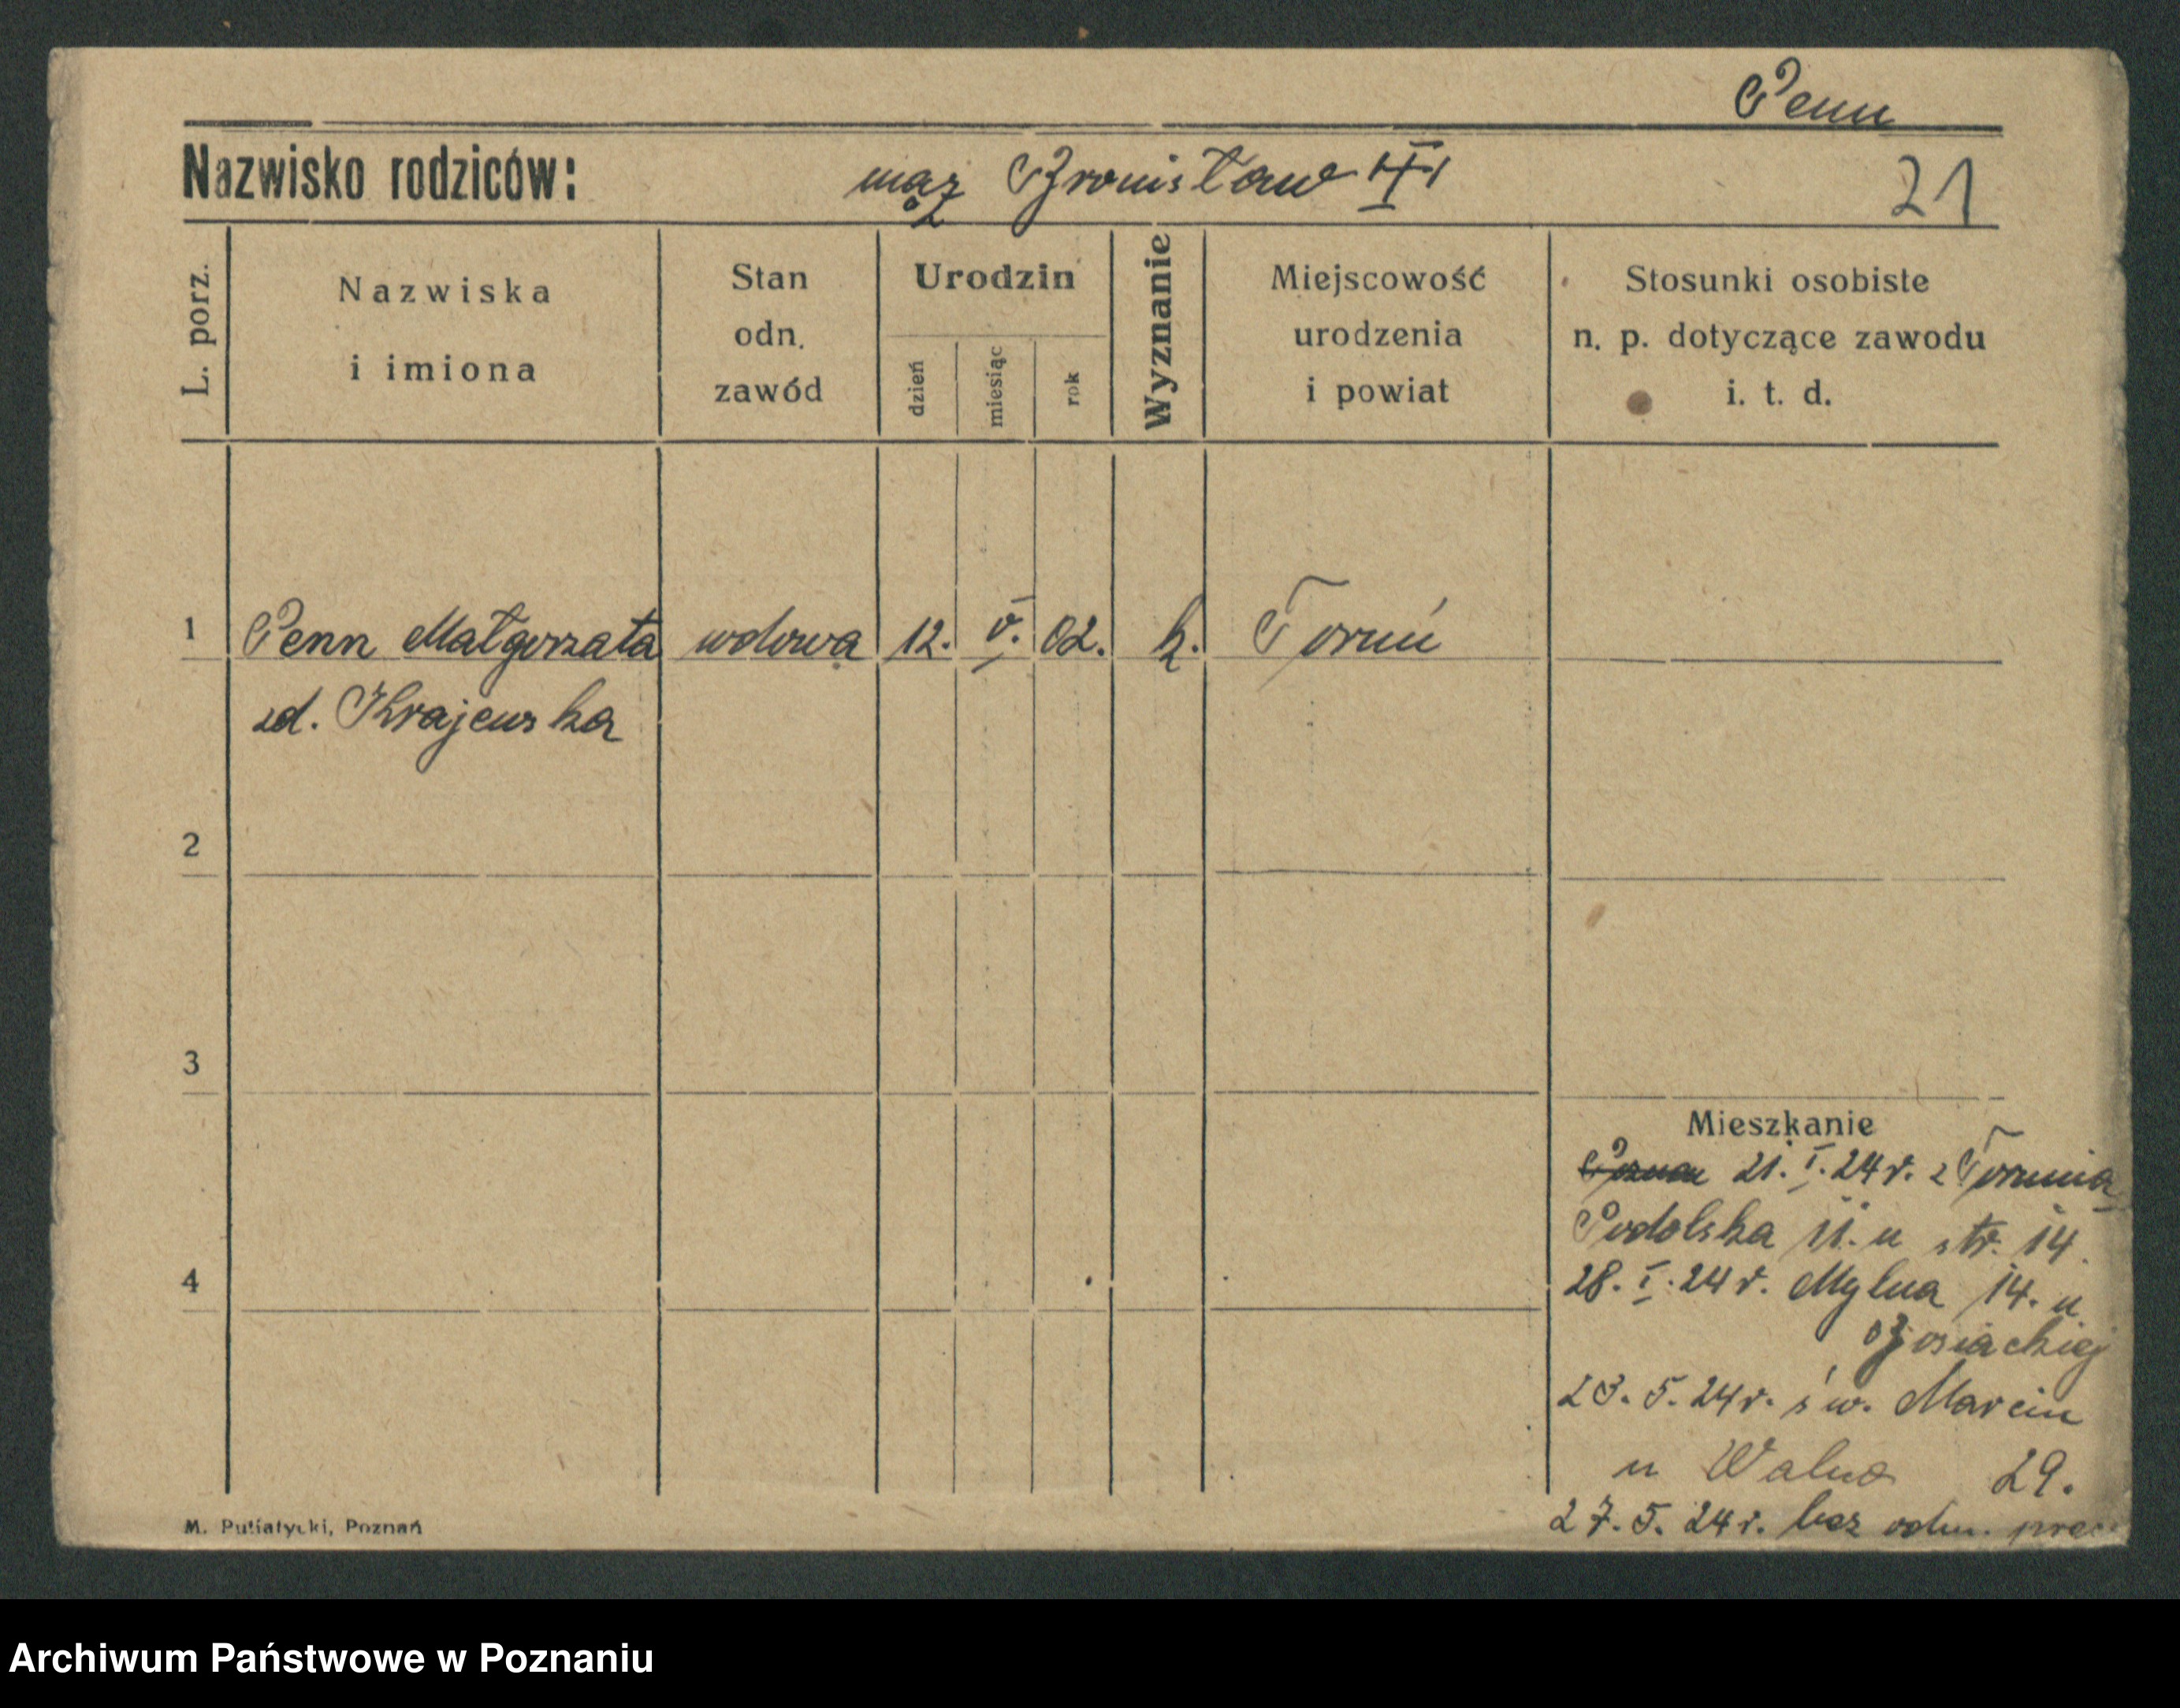 Penn
Nazwisko rodziców: mąż Bronisław
21
L. porz.
Nazwiska
i imiona
Stan
odn.
zawód
Urodzin
dzień
miesiąc
rok
Wyznanie
Miejscowość
urodzenia
i powiat
Stosunki osobiste
n. p. dotyczące zawodu
i. t. d.
1 Penn Małgorzata wdowa 12. V. 02. k. Toruń
zd. Krajewska
2
3
4
Mieszkanie
21. I. 24 r. z Torunia
Podolska 11. u str. 14.
28. I. 24 r. Mylna 14. u
23. 5. 24 r. św. Marcin
u 29.
27. 5. 24 r. bez odm.
M. Putiatycki, Poznań
Archiwum Państwowe w Poznaniu